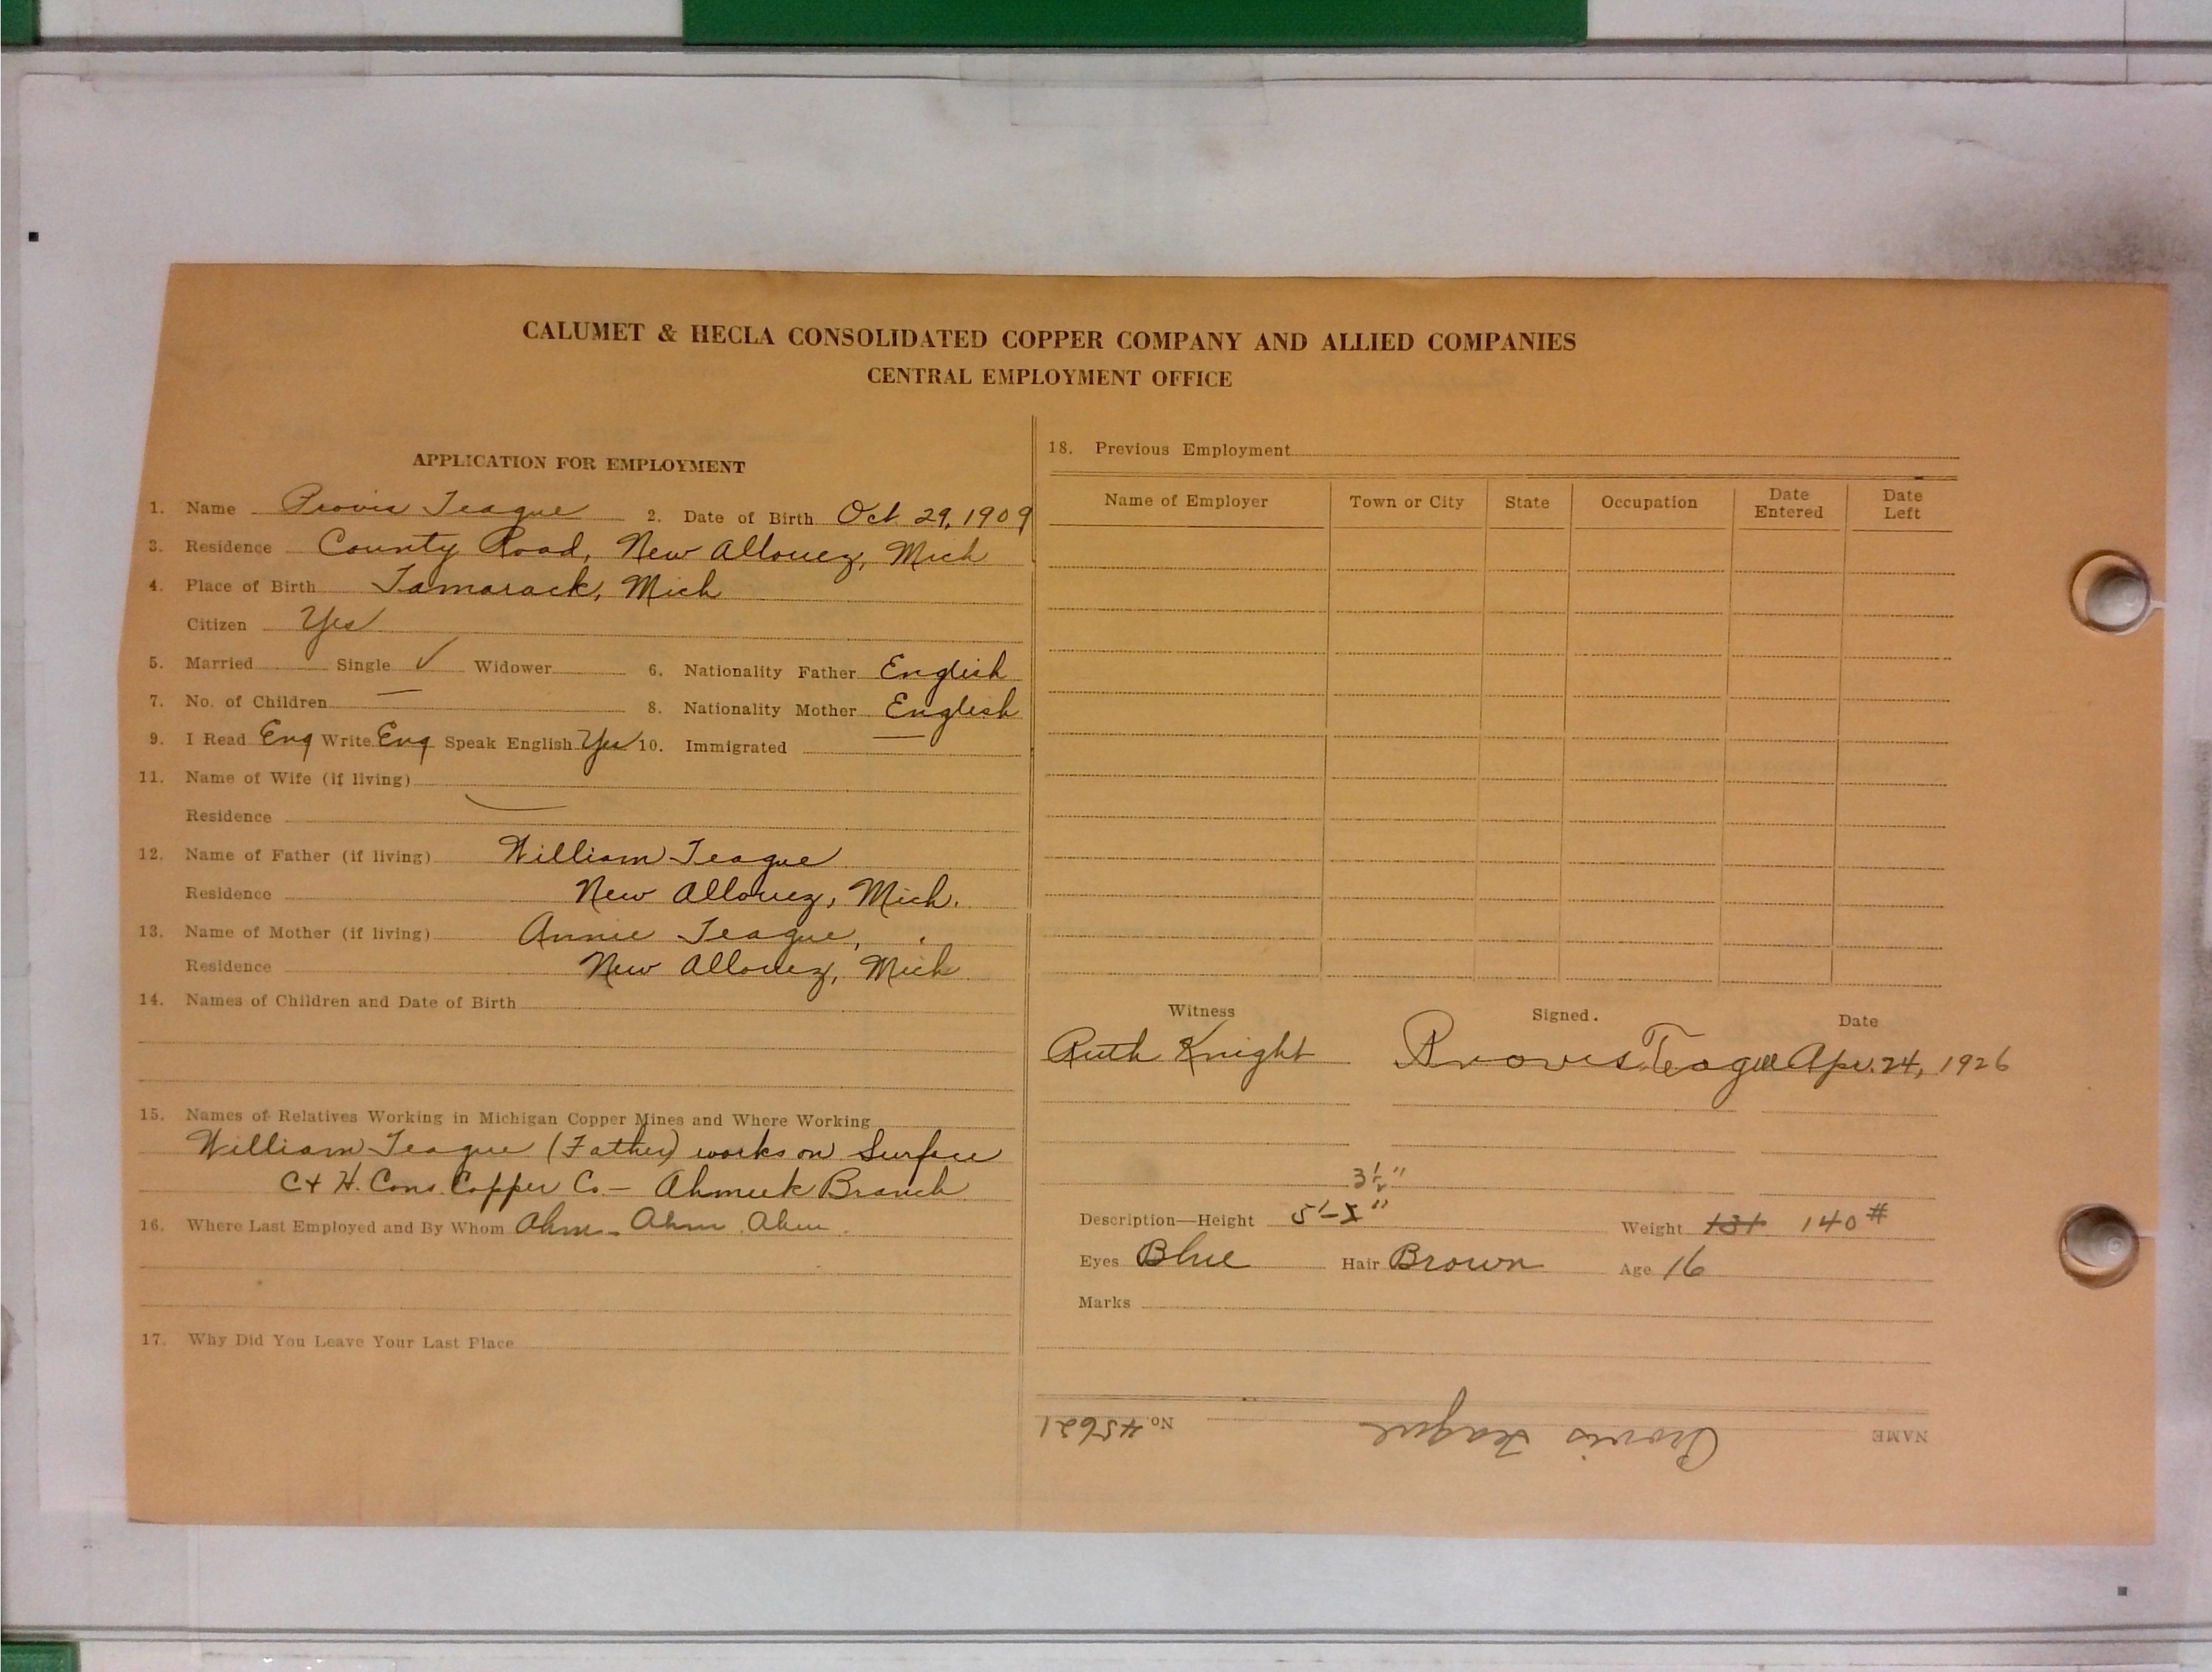 CALUMET & HECLA CONSOLIDATED COPPER COMPANY AND ALLIED COMPANIES
CENTRAL EMPLOYMENT OFFICE
APPLICATION FOR EMPLOYMENT
1. Name Provis Teague 2. Date of Birth Oct. 29, 1909
3. Residence County Road, New Allouez, Mich
4. Place of Birth Tamarack, Mich
Citizen Yes
5. Married Single ✓ Widower 6. Nationality Father English
7. No. of Children — 8. Nationality Mother English
9. I Read Eng Write Eng Speak English Yes 10. Immigrated —
11. Name of Wife (if living)
Residence —
12. Name of Father (if living) William Teague
Residence New Allouez, Mich.
13. Name of Mother (if living) Annie Teague,
Residence New Allouez, Mich
14. Names of Children and Date of Birth
15. Names of Relatives Working in Michigan Copper Mines and Where Working
William Teague (Father) works on Surface
C + H. Cons. Copper Co. — Ahmeek Branch
16. Where Last Employed and By Whom Ahm - Ahm Ahm
17. Why Did You Leave Your Last Place
18. Previous Employment
Name of Employer Town or City State Occupation Date Entered Date Left
Witness Signed. Date
Ruth Knight Provis Teague Apr. 24, 1926
3½"
Description—Height 5'- " Weight 131 140#
Eyes Blue Hair Brown Age 16
Marks
NAME Provis Teague No. 45621